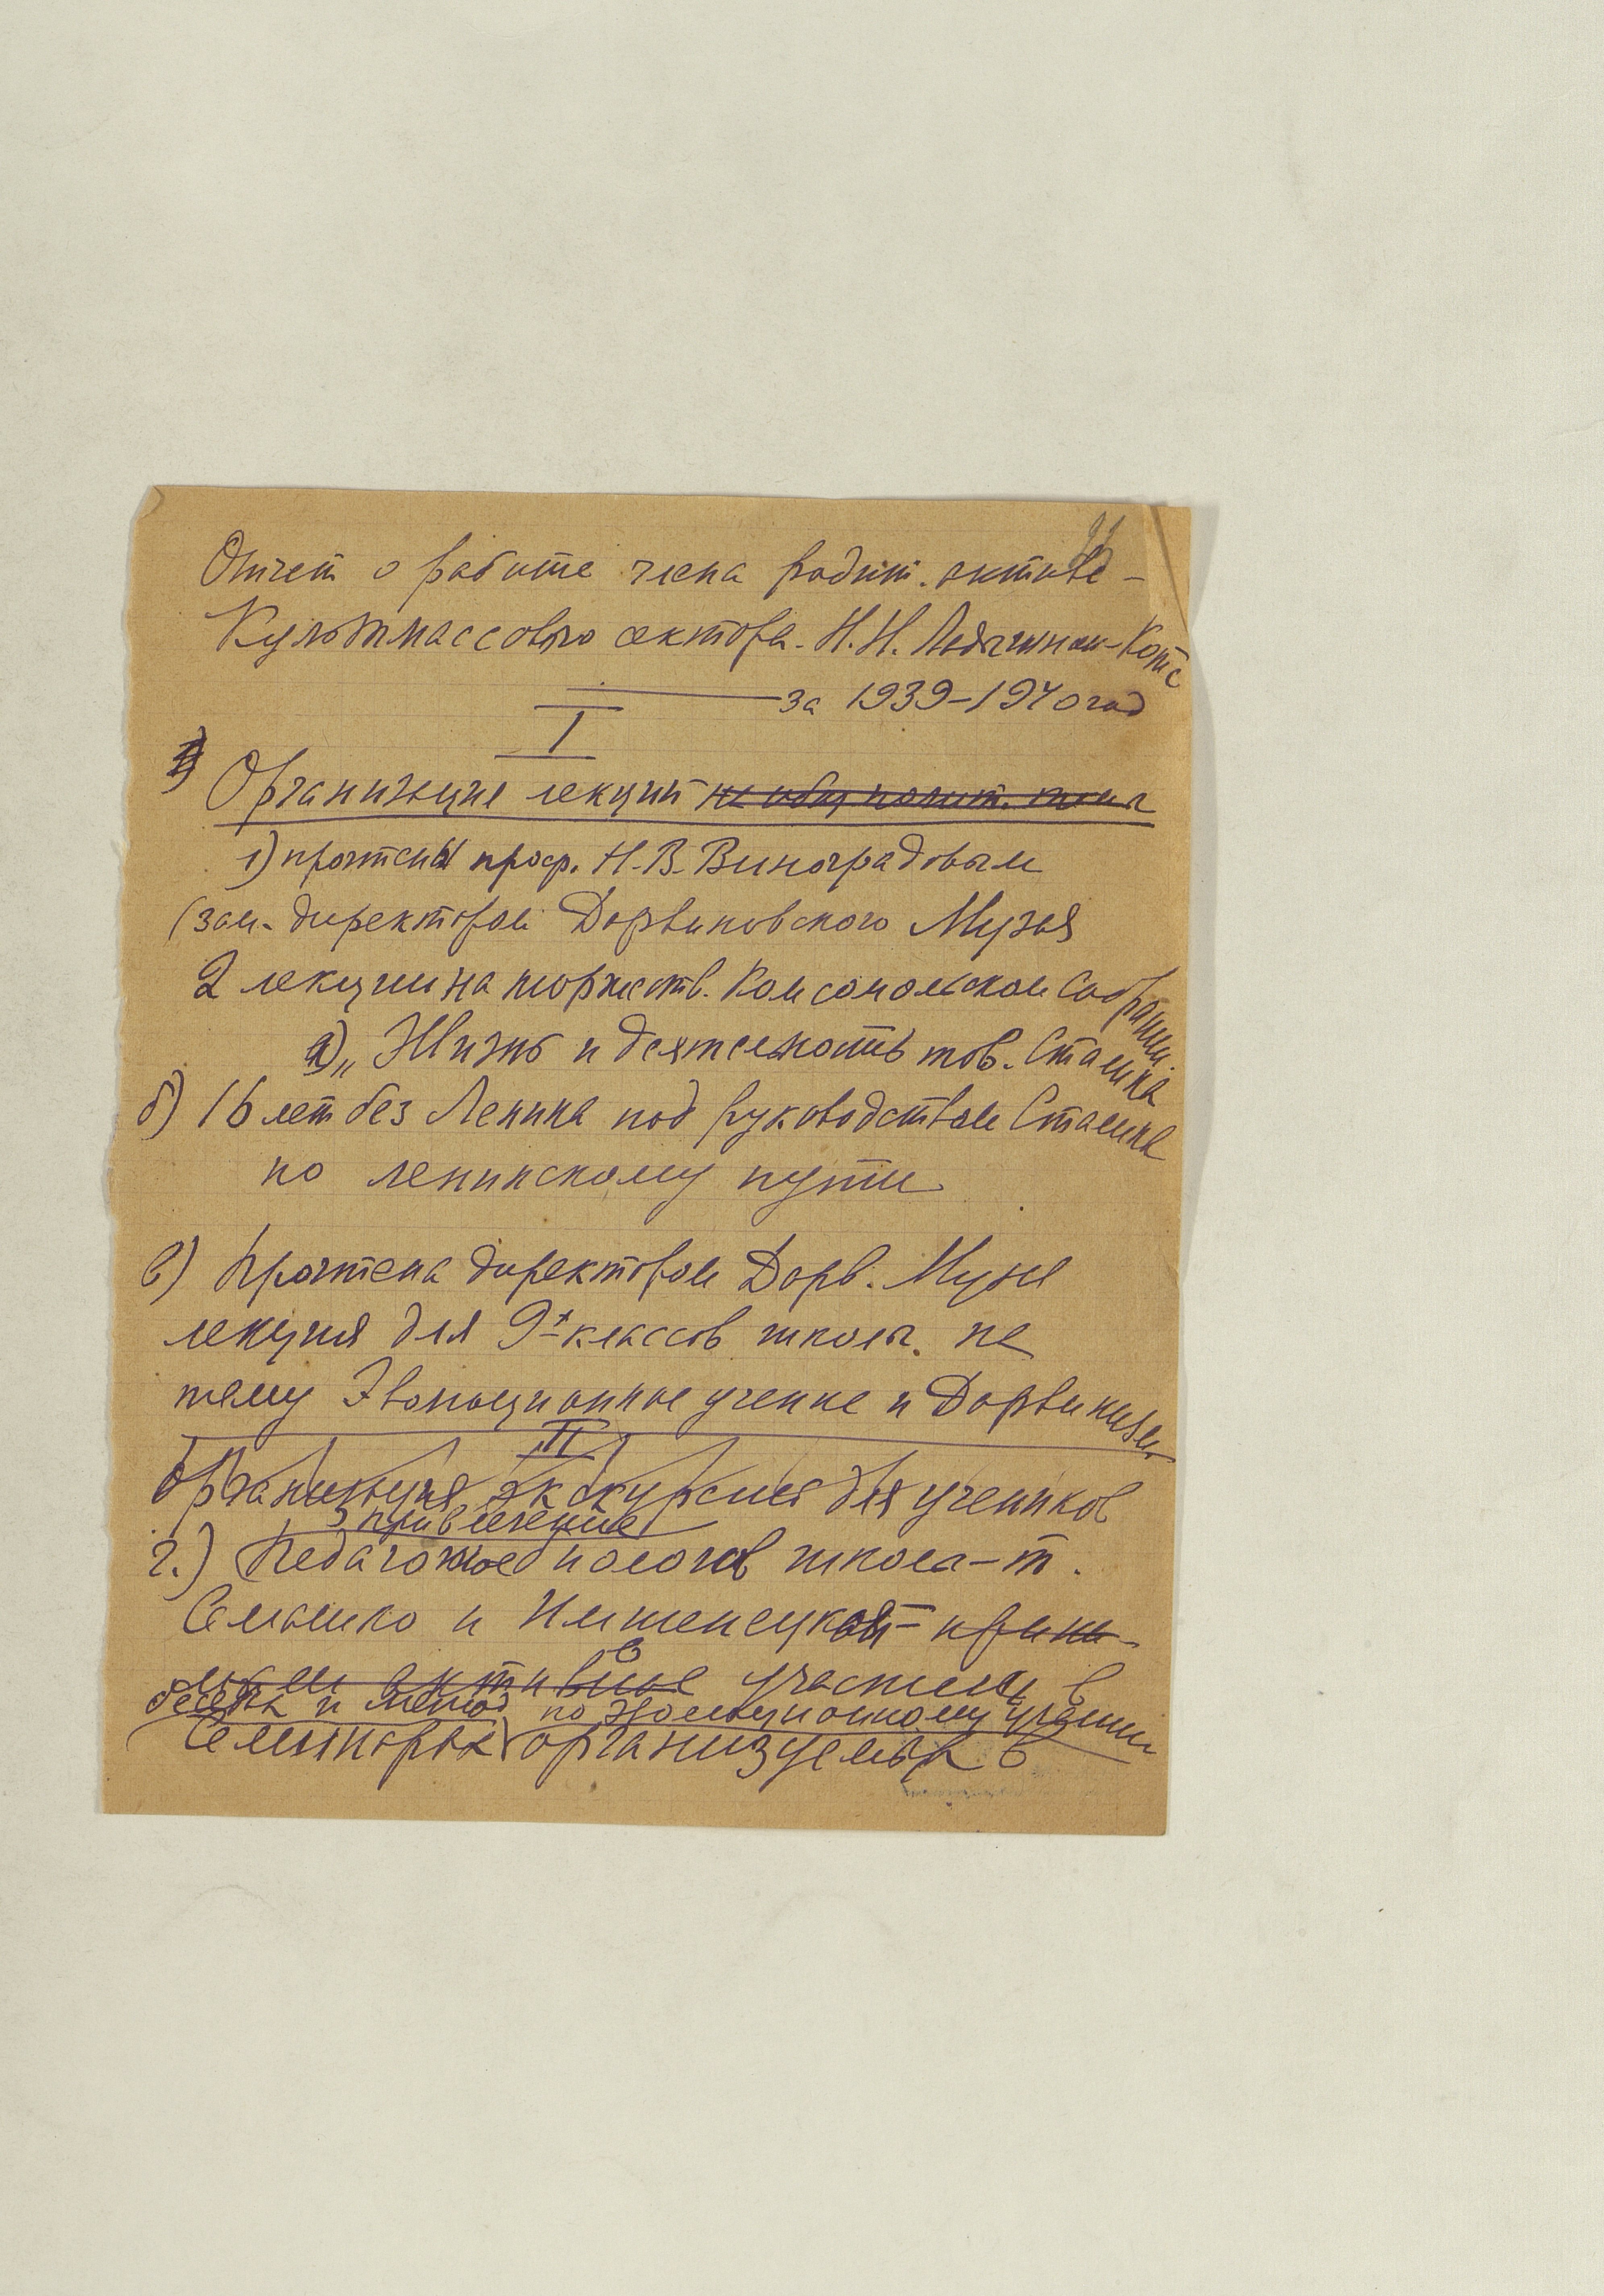 Отчет о работе члена родит. актива –
Культмассового сектора. Н.Н. Ладыгиной-Котс
за 1939–1940 год
I
Организация лекций на общ. полит. темы
1) прочтены проф. Н.В. Виноградовым
(зам. директором Дарвиновского Музея
2 лекции на торжеств. Комсомольском собрании
а) „Жизнь и деятельность тов. Сталина
б) 16 лет без Ленина под руководством Сталина
по ленинскому пути
в) Прочтена директором Дарв. Музея
лекция для 9х классов школы. на
тему Эволюционное учение и Дарвинизм
II
Организация экскурсий для учеников
привлечение
г.) Педагогов биологов школы – т.
Семашко и Ниженецкой –
активное участию в
беседах и метод. по эволюционному учению
Семинарах организуемых в